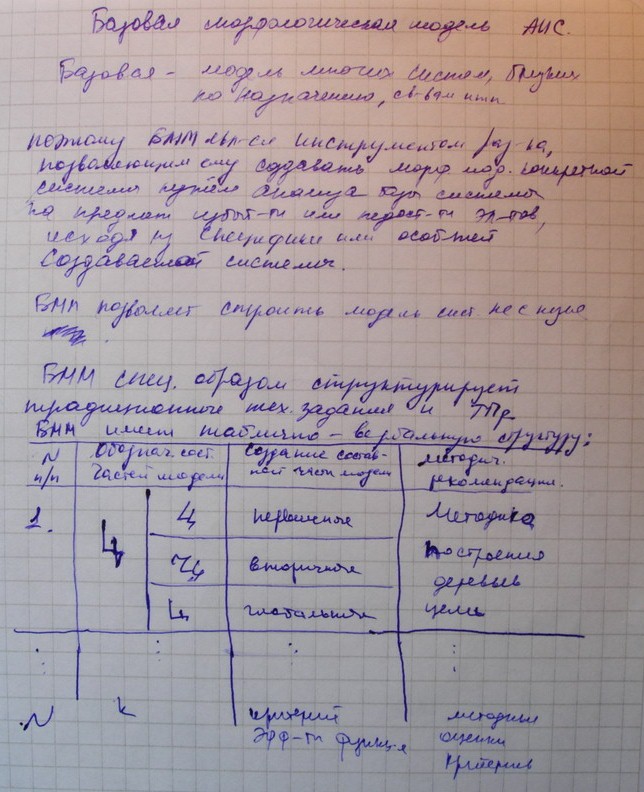 Базовая морфологическая модель АИС.
Базовая - модель многих систем, близких
по назначению, св-вам и тп.
поэтому БММ явл-ся инструментом раз-ка,
позволяющим ему создавать морф. мод. конкретной
системы путём анализа базы системы
на предмет избыт-ти или недост-ти эл-тов,
исходя из специфики или особ-тей
создаваемой системы.
БММ позволяет строить модель сист. не с нуля
БММ спец. образом структурирует
традиционные тех. задания и ТПр
БММ имеет таблично - вербальную структуру:
N п/п
Обознач. сост. частей модели
Создание состав-ной части модели
Методич. рекомендации.
1.
Ц
Ц первичные
Ц вторичные
Ц глобальные
Методика
построения
деревьев
цели
N
К
критерий
Эфф-ти функц-я
методики
оценки
критериев